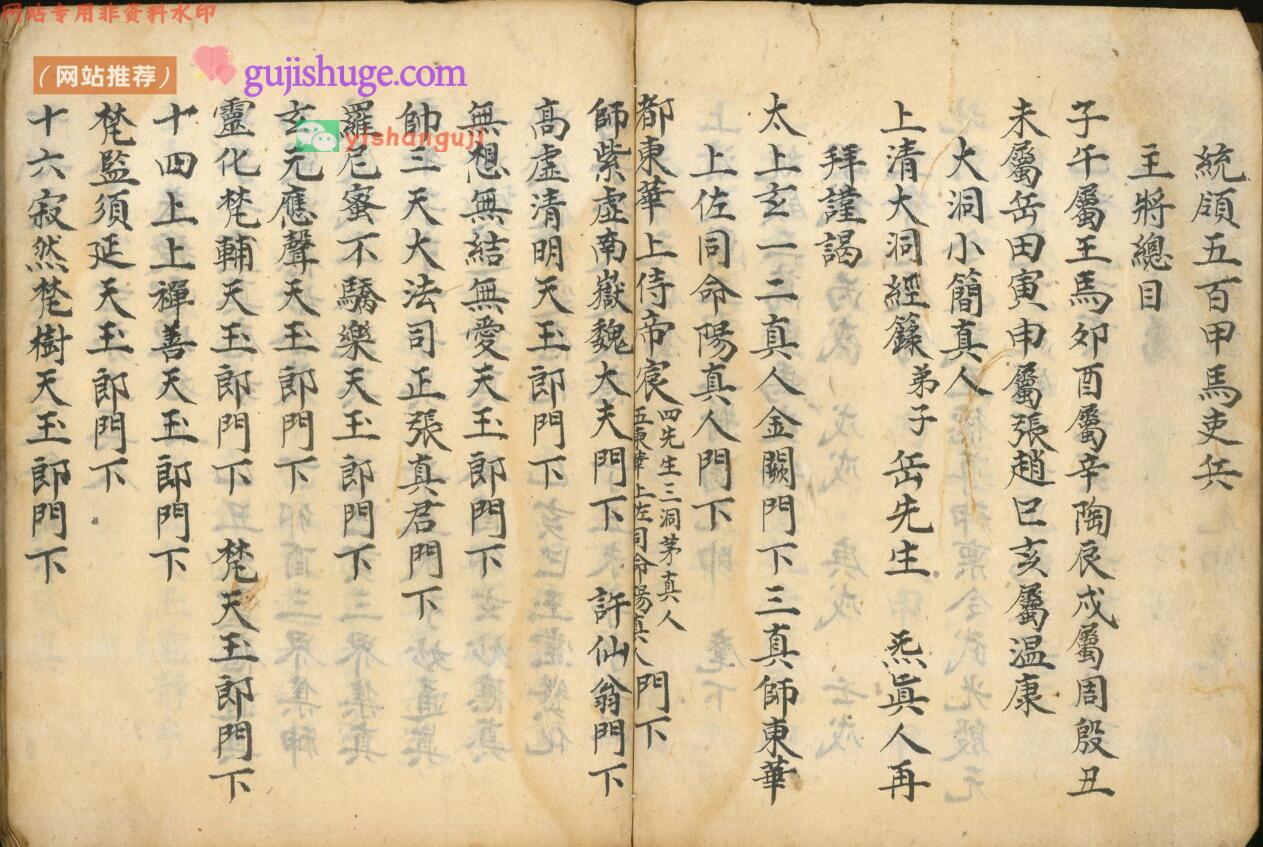 网站专用非资料水印
（网站推荐）
gujishuge.com
yishanguji
統領五百甲馬吏兵
主將總目
子午屬王馬卯酉屬辛陶辰戍屬周殷丑
未屬岳田寅申屬張趙巳亥屬温康
大洞小簡真人
上清大洞經籙弟子岳先生 炁真人再
拜謹謁
太上玄一二真人金闕門下三真師東華
上佐同命陽真人門下
都東華上侍帝宸四先生三洞茅真人五東華上佐同命陽真人門下
師紫虛南嶽魏大夫門下 許仙翁門下
高虛清明天玉郎門下
無想無結無愛天玉郎門下
帥三天大法司正張真君門下
羅尼蜜不驕樂天玉郎門下
玄元應聲天玉郎門下
靈化梵輔天玉郎門下 梵天玉郎門下
十四上上禪善天玉郎門下
梵監須延天玉郎門下
十六寂然梵樹天玉郎門下